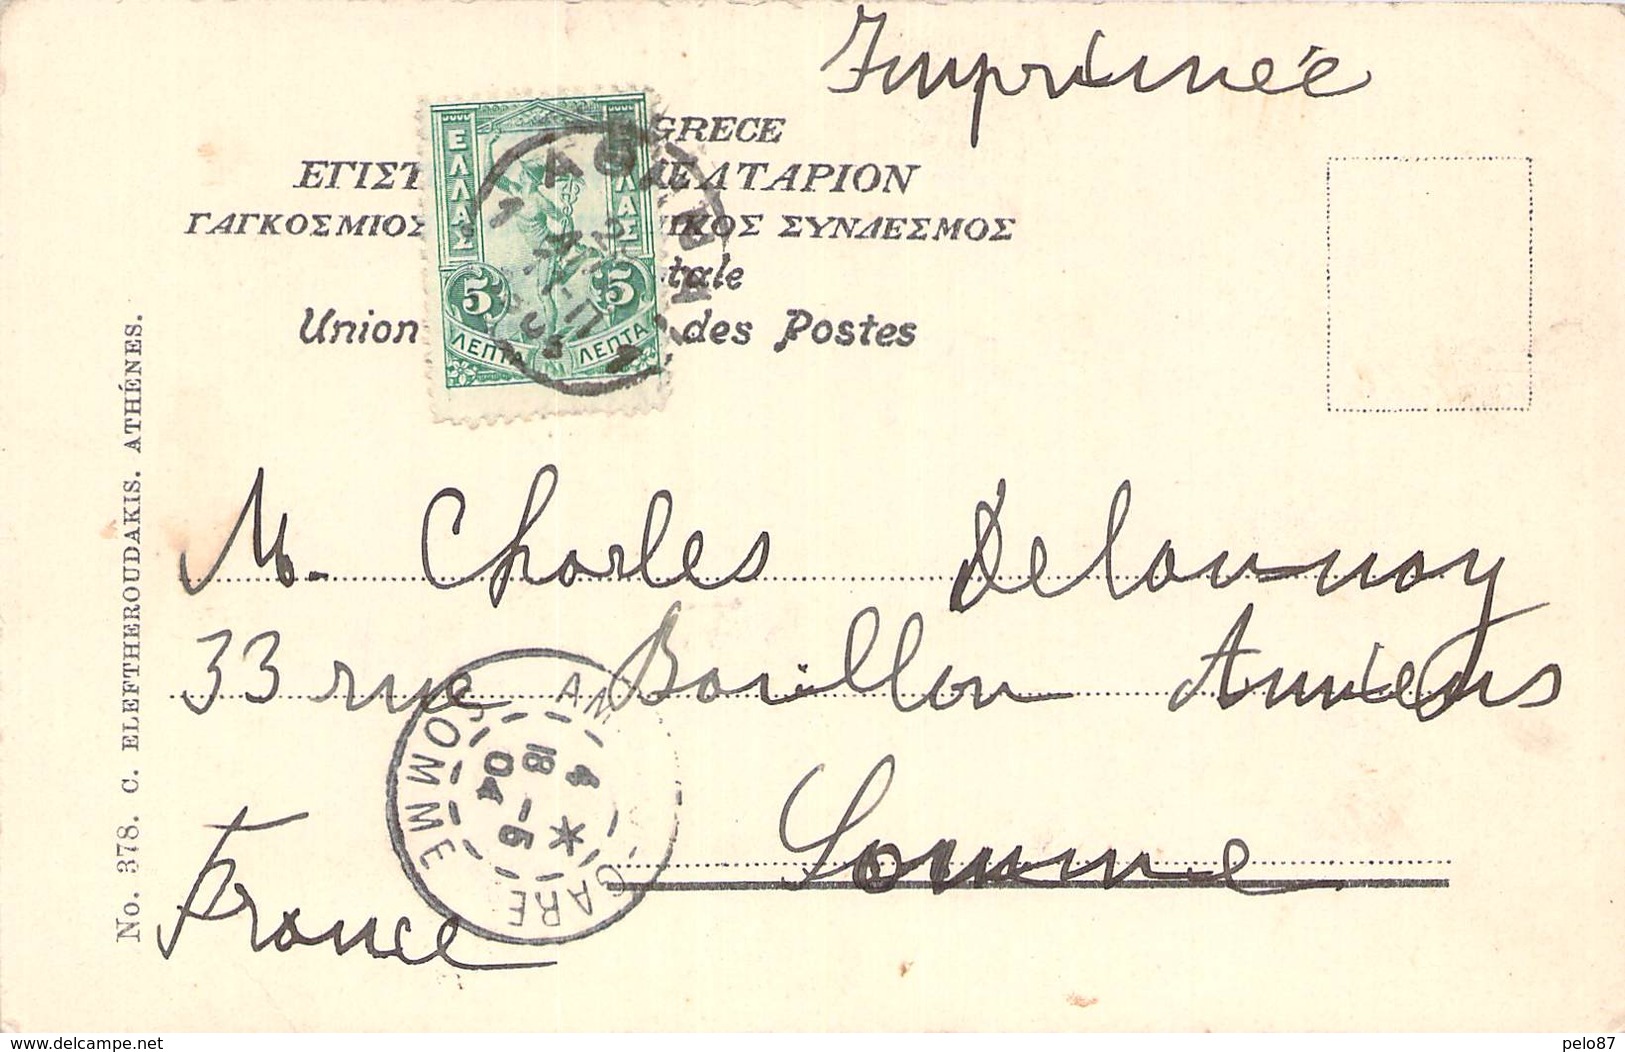 Imprimée
GRECE
ΕΓΙΣΤ ΔΕΛΤΑΡΙΟΝ
ΓΑΓΚΟΣΜΙΟΣ ΙΚΟΣ ΣΥΝΔΕΣΜΟΣ
tale
Union des Postes
ΕΛΛΑΣ ΕΛΛΑΣ
5 5
ΛΕΠΤΑ ΛΕΠΤΑ
M. Charles Delaunay
33 rue Bouillon Amiens
Somme
France
GARE
SOMME
18 - 5
04
No. 378. C. ELEFTHEROUDAKIS. ATHÉNES.
www.delcampe.net
pelo87